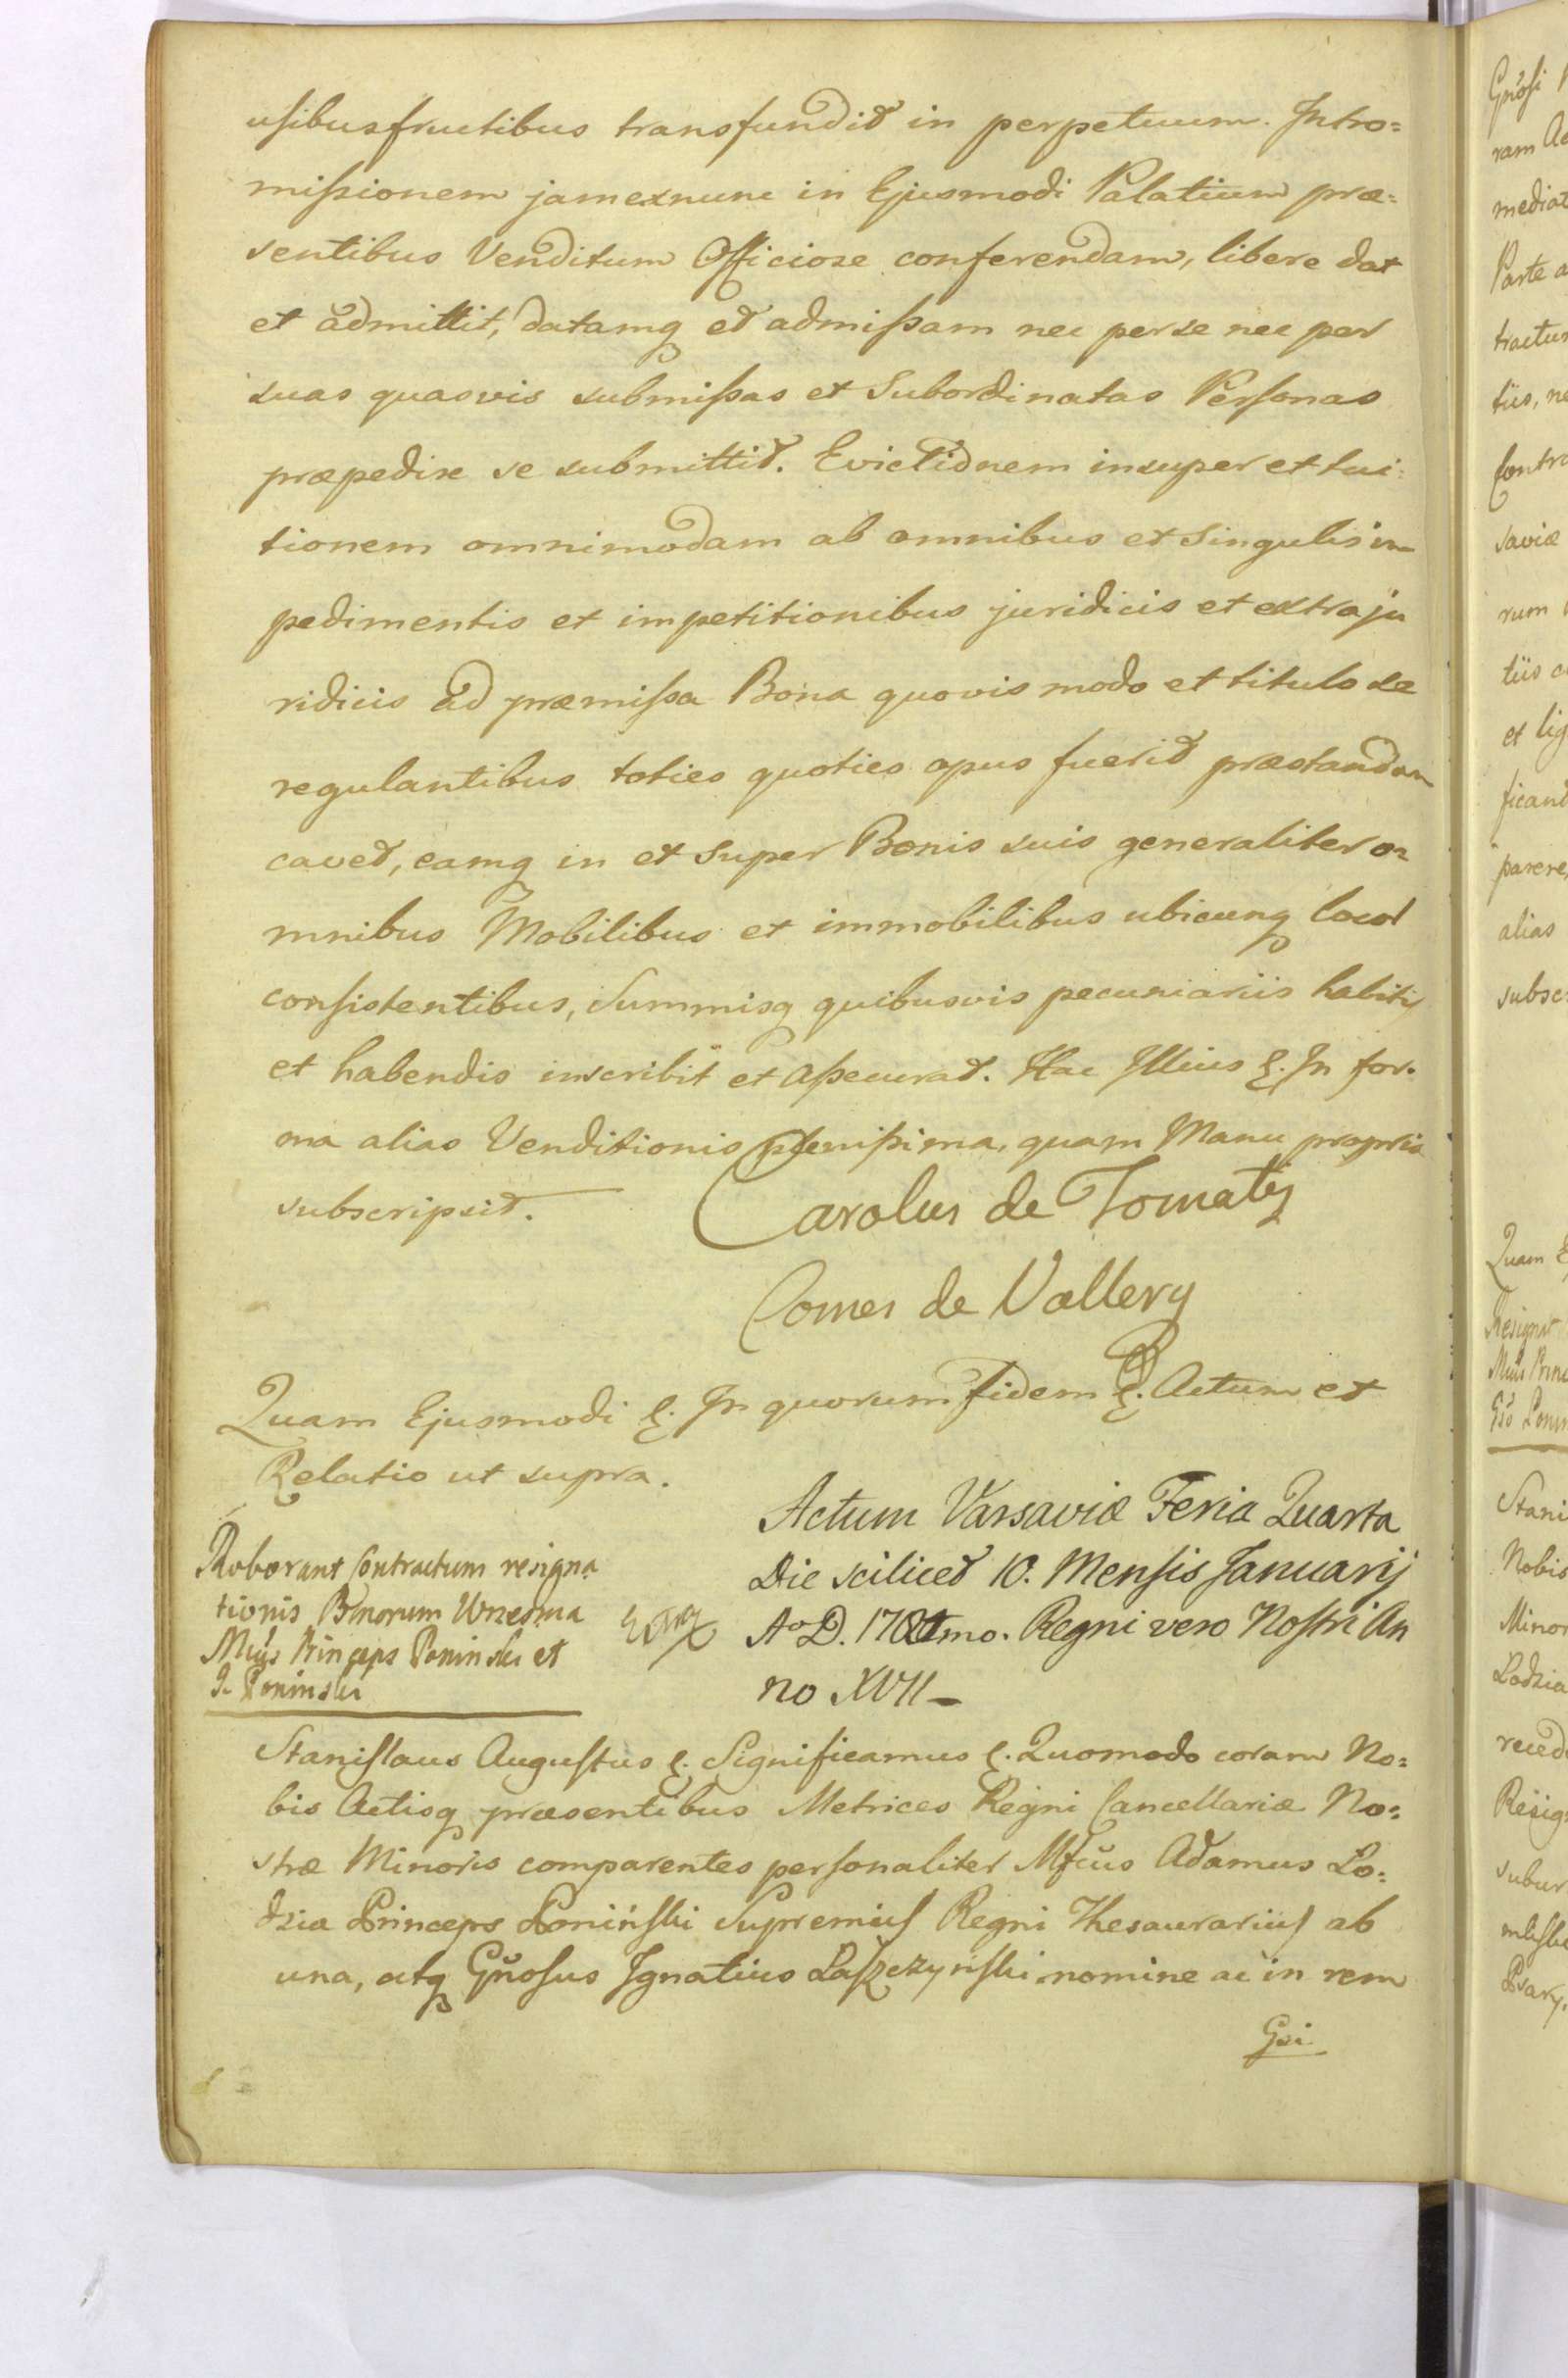 usibusfructibus transfundit in perpetuum. Intro=
missionem jamexnunc in Ejusmodi Palatium præ=
sentibus Venditum Officiose conferendam, libere dat
et admittit, datamq et admissam nec per se nec per
suas quasvis submissas et Subordinatas Personas
præpedire se submittit. Evictionem insuper et tui=
tionem omnimodam ab omnibus et Singulis im
pedimentis et impetitionibus juridicis et extraju
ridicis ad præmissa Bona quovis modo et titulo se
regulantibus toties quoties opus fuerit præstandam
cavet, eamq in et Super Bonis suis generaliter o=
mnibus Mobilibus et immobilibus ubicunq
consistentibus, Summisq quibusvis pecuniariis habitis
et habendis inscribit et assecurat. Hac Illius &. In for=
ma alias Venditionis plenissima, quam Manu propria
subscripsit. Carolus de Tomatis
Comes de Vallery
Quam Ejusmodi &. In quorum fidem &. Actum et
Relatio ut supra.
Actum Varsaviæ Feria Quarta
Die scilicet 10. Mensis Januarij
Aº D. Regni vero Nostri An
no XVII
Roborant Contractum resigna
tionis Bonorum Września
Princeps Poninski et
Poninski
Stanislaus Augustus &. Significamus &. Quomodo coram No=
bis Actisq præsentibus Metrices Regni Cancellariæ No=
stræ Minoris comparentes personaliter Mfcus Adamus Lo=
dzia Princeps Poniński Supremus Regni Thesaurarius ab
una, atq Gnosus Ignatius Łaszczyński nomine ac in rem
Gsi